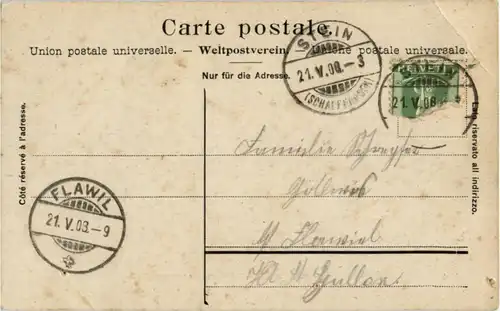 Carte postale.
Union postale universelle. — Weltpostverein. — postale universale.
Nur für die Adresse.
STEIN
21. V. 08. – 3
(SCHAFFHAUSEN)
STEIN
21. V. 08
Côté réservé à l'adresse.
Lato riservato all indirizzo.
Familie
Flawil
Kt. St. Gallen
FLAWIL
21. V. 08. – 9